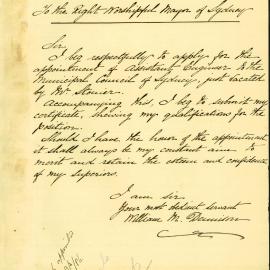 To the Right Worshipful Mayor of Sydney
Sir,
I beg respectfully to apply for the
appointment as Assistant Engineer to the
Municipal Council of Sydney, just vacated
by Mr
Accompanying this, I beg to submit my
certificate, shewing my qualifications for the
position.
Should I have the honor of the appointment
it shall always be my constant aim to
merit and retain the esteem and confidence
of my Superiors.
I am sir,
Your most obedient servant
William M.